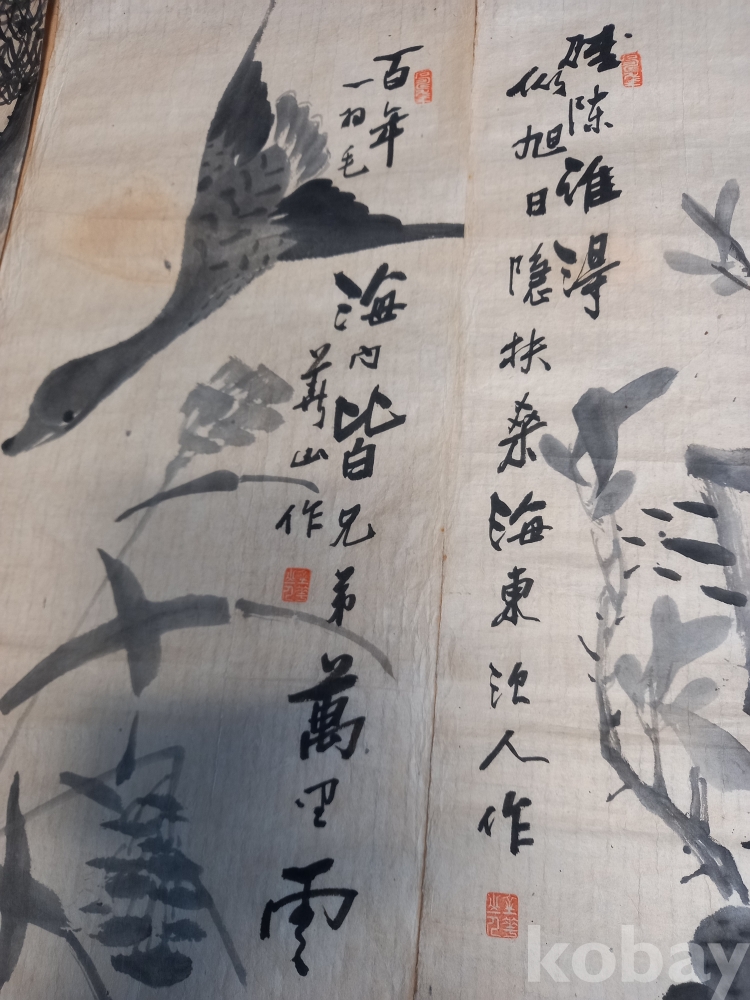 陳誰得
似旭日隱扶桑海東人作
百年
一羽毛
海內皆兄弟萬里雲
山作
kobay